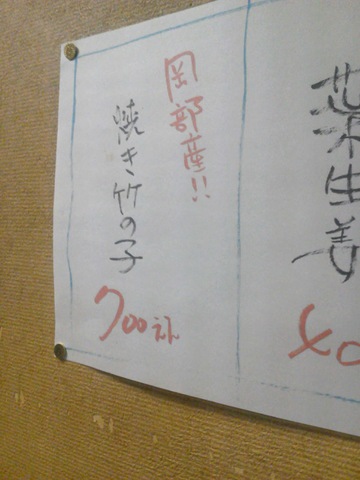 葉生姜
岡部産!!
焼き竹の子
700えん